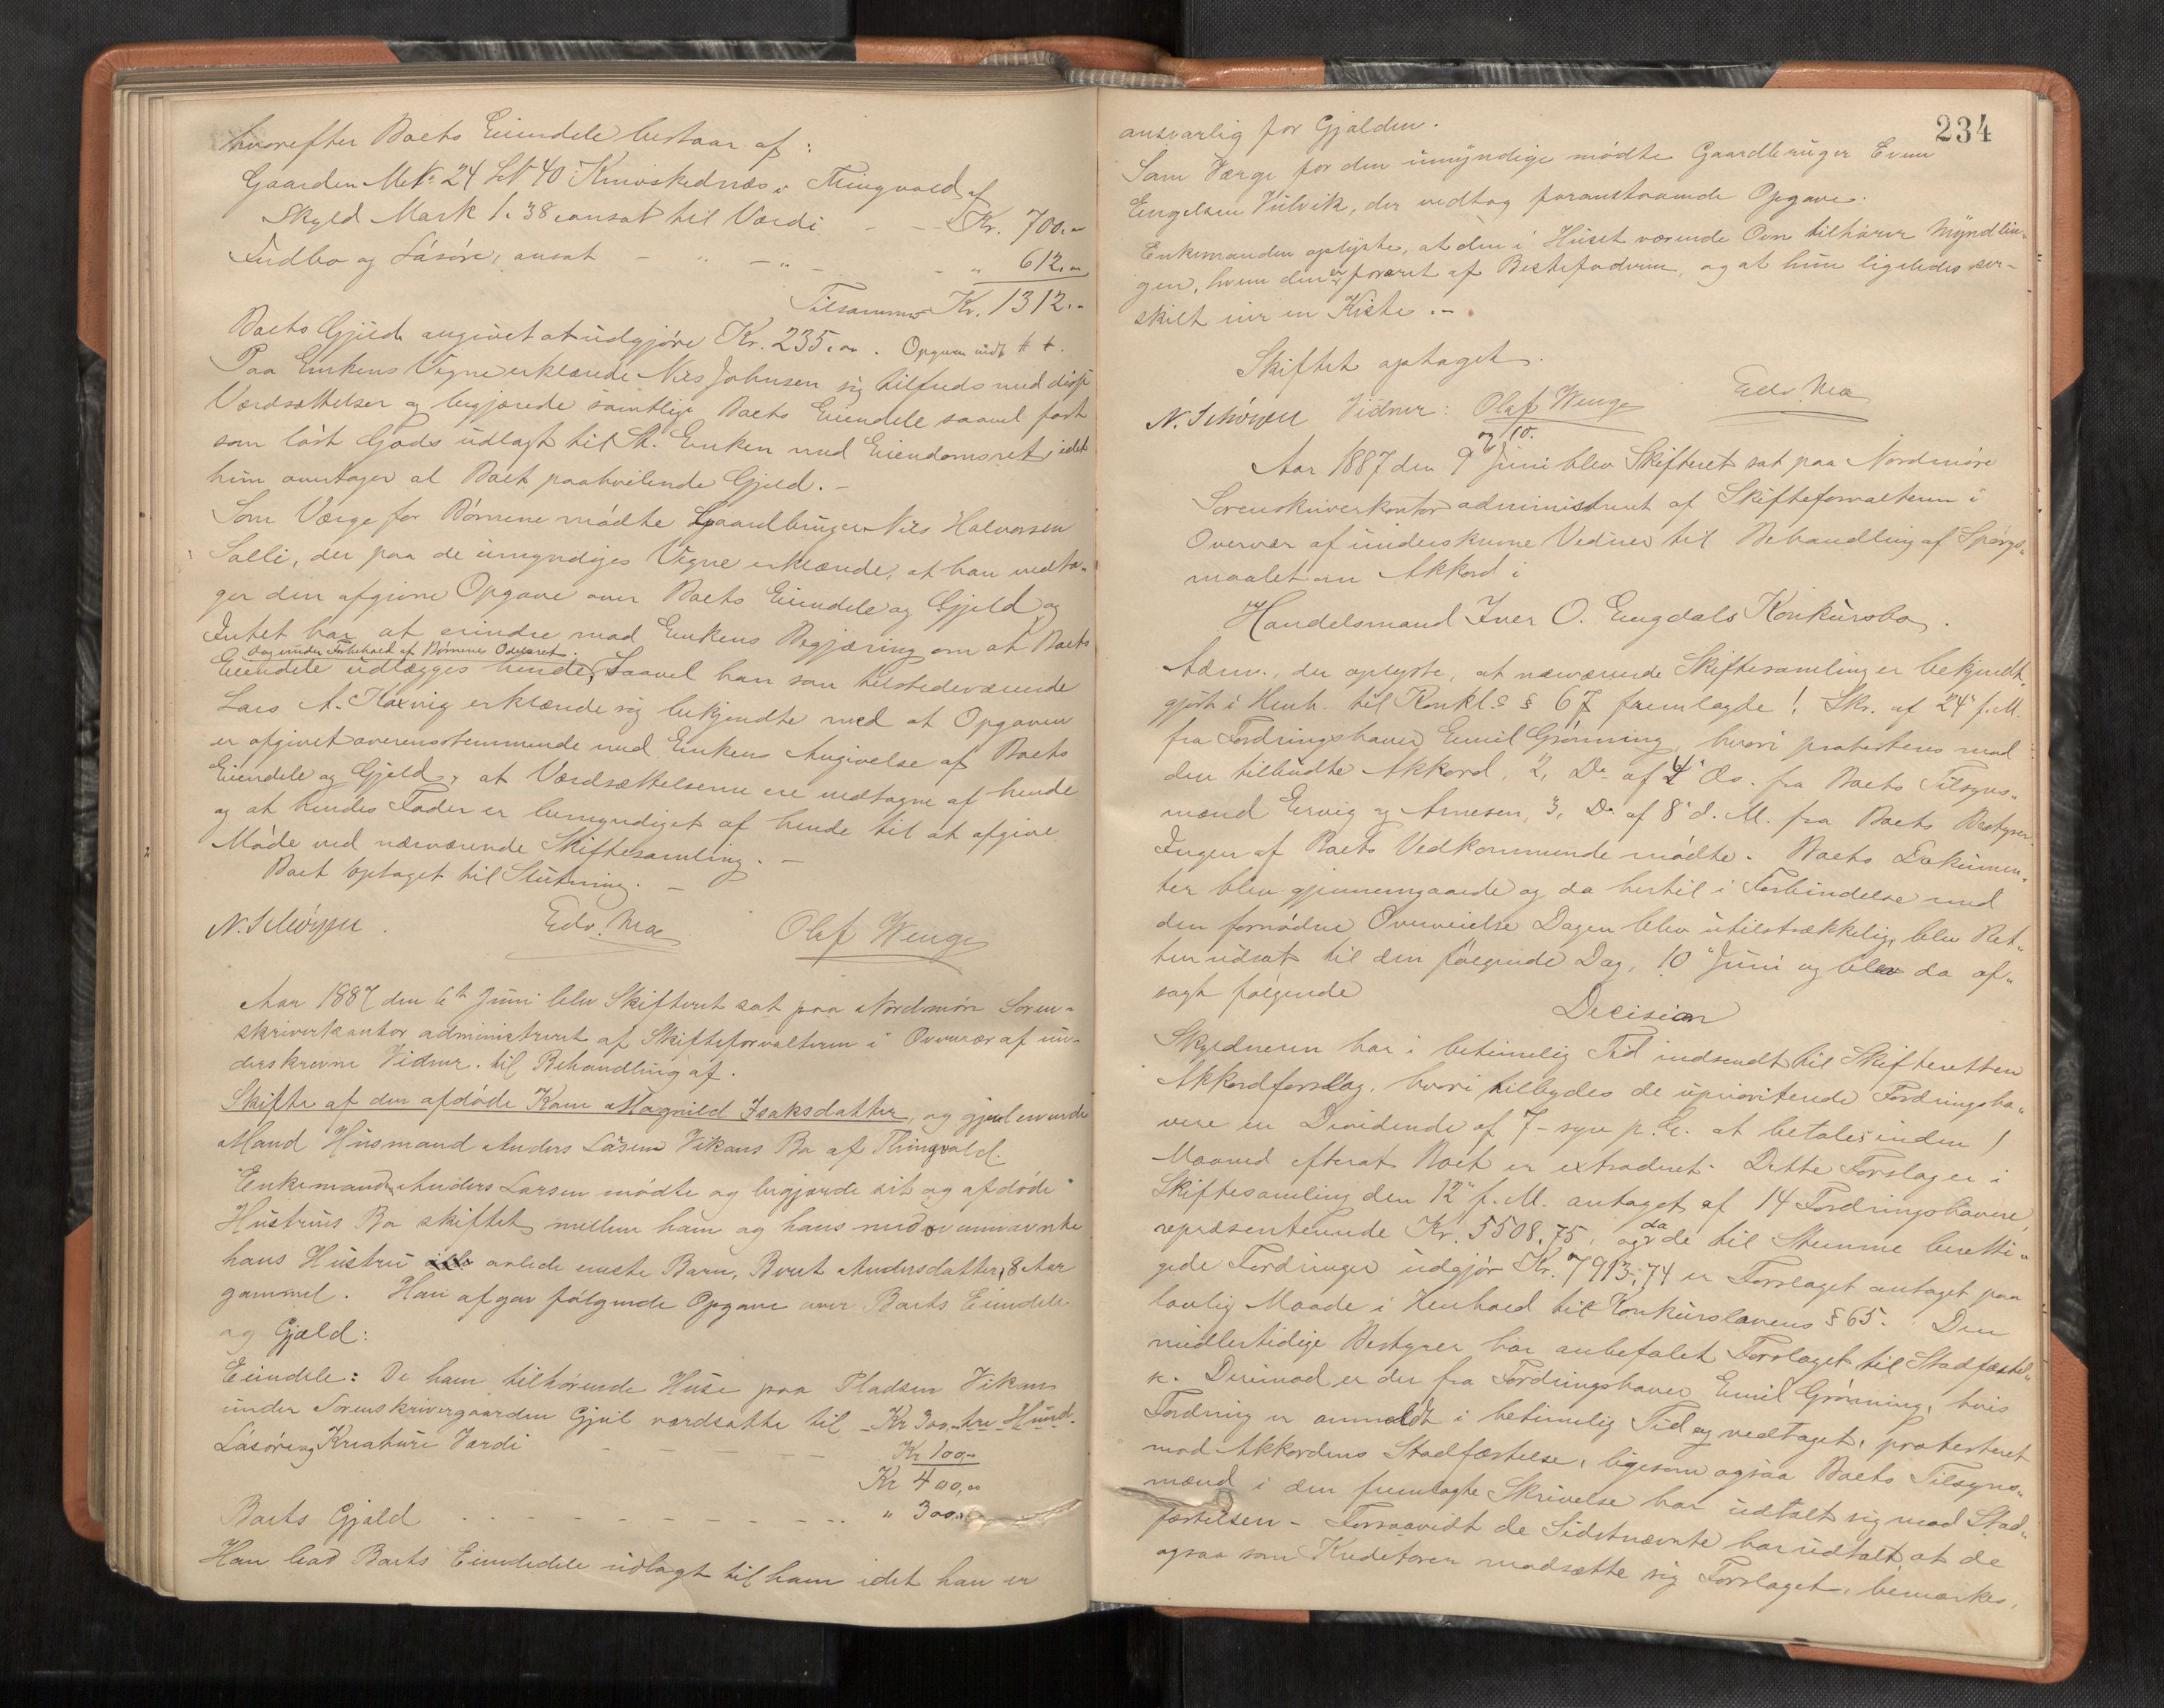 hvorefter Boets Eiendele bestaar af:
Gaarden Mtr. N: 24 LN 40 Knivskednæs i Thingvold af
Skyld Mark 1. 38, ansat til Værdi - - Kr. 700.00
Indbo og Løsøre, ansat - " - " - - " 612.00
Tilsammen Kr. 1312.-
Boets Gjeld angivet at udgjøre Kr. 235.00. Opgaven
Paa Enkens Vegne erklærede Nils Johnsen sig tilfreds med disse
Værdsættelser og begjærede samtlige Boets Eiendele saavel fast
som løst Gods udlagt til Enken med Eiendomsret, idet
hun overtager al Boet paahvilende Gjeld.-
Som Værge for Børnene mødte Gaardbruger Nils Halvorsen
Solli, der paa de umyndiges Vegne erklærede, at han vedta-
ger den afgivne Opgave over Boets Eiendele og Gjeld og
Intet har at erindre mod Enkens Begjæring om at Boets
dog under Forbehold af Børnenes Odelsret.
Eiendele udlægges hende, Saavel han som tilstedeværende
Lars A. Koxvig erklærede sig bekjendte med at Opgaven
er afgivet overensstemmende med Enkens Angivelse af Boets
Eiendele og Gjeld, at Værdsættelserne ere vedtagne af hende
og at hendes Fader er bemyndiget af hende til at afgive
Møde ved nærværende Skiftesamling.-
Boet optaget til Slutning.-
N. Schøyen Edv. Moe Olaf Wenge
Aar 1887 den 6te Juni blev Skifteret sat paa Nordmøre Soren-
skriverkontor administreret af Skifteforvalteren i Overvær af un-
derskrevne Vidner til Behandling af.
Skifte af den afdøde Kone Magnild Isaksdatter, og gjenlevende
Mand Husmand Anders Larsen Vikans Bo af Thingvold.
Enkemand Anders Larsen mødte og begjærde sit og afdøde
Hustrus Bo skiftet mellem ham og hans med ovennævnte
hans Hustru avlede eneste Barn, Berit Andersdatter, 8 Aar
gammel. Han afgav følgende Opgave over Boets Eiendele
og Gjæld:
Eiendele: De ham tilhørende Huse paa Pladsen Vikan
under Sorenskrivergaarden Gjul værdsatte til Kr 300. tre Hund.
Løsøre og Kreature Værdi - - - - Kr 100,-
Kr 400,00
Boets Gjæld - - - - - - - - - " 300.
Han bad Boets Eiendele udlagt til ham idet han er
234
ansvarlig for Gjælden.
Som Værge for den umyndige mødte Gaardbruger Even
Engelsen Vulvik, der vedtog foranstaaende Opgave.
Enkemanden oplyste, at den i Huset værende Ovn tilhører Myndlin-
gen, hvem den er foræret af Bestefaderen, og at hun ligeledes sær-
skilt eier en Kiste.-
Skiftet optaget.
N. Schøyen Vidner: Olaf Wenge Edv. Moe
og 10.
Aar 1887 den 9 Juni blev Skifteret sat paa Nordmøre
Sorenskriverkontor administreret af Skifteforvalteren i
Overvær af underskrevne Vidner til Behandling af Spørgs-
maalet om Akkord i
Handelsmand Iver O. Engdals Konkursbo.
Adm., der oplyste, at nærværende Skiftesamling er bekjendt-
gjort i Henh. til Konkl.s § 67 fremlagde 1. Skr. af 24 f. M.
fra Fordringshaver Emil Grønning, hvori protesteres mod
den tilbudte Akkord, 2, Do af 4 ds. fra Boets Tilsyns-
mænd Ervig og Arnesen, 3, Do af 8 d. M. fra Boets Bestyrer.
Ingen af Boets Vedkommende mødte. Boets Dokumen-
ter blev gjennemgaaede og da hertil i Forbindelse med
den fornødne Overveielse Dagen blev utilstrækkelig, blev Ret-
ten udsat til den følgende Dag, 10 Juni og blev da af-
sagt følgende
Decision
Skyldneren har i betimelig Tid indsendt til Skifteretten
Akkordforslag, hvori tilbydes de uprioriterede Fordringsha-
vere en Dividende af 7 - syv p. C. at betales inden 1
Maaned efterat Boet er extraderet. Dette Forslag er i
Skiftesamling den 12 f. M. antaget af 14 Fordringshavere,
repræsenterende Kr. 5508,75, og da de til Stemme beretti-
gede Fordringer udgjør Kr. 7913,74 er Forslaget antaget paa
lovlig Maade i Henhold til Konkurslovens § 65. Den
midlertidige Bestyrer har anbefalet Forslaget til Stadfæstel-
se. Derimod er der fra Fordringshaver Emil Grønning, hvis
Fordring er anmeldt i betimelig Tid og vedtaget, protesteret
mod Akkordens Stadfæstelse, ligesom ogsaa Boets Tilsyns-
mænd i den fremlagte Skrivelse har udtalt sig mod Stad-
fæstelsen. Forsaavidt de Sidstnævnte har udtalt, at de
ogsaa som Kreditorer modsætte sig Forslaget, bemærkes,